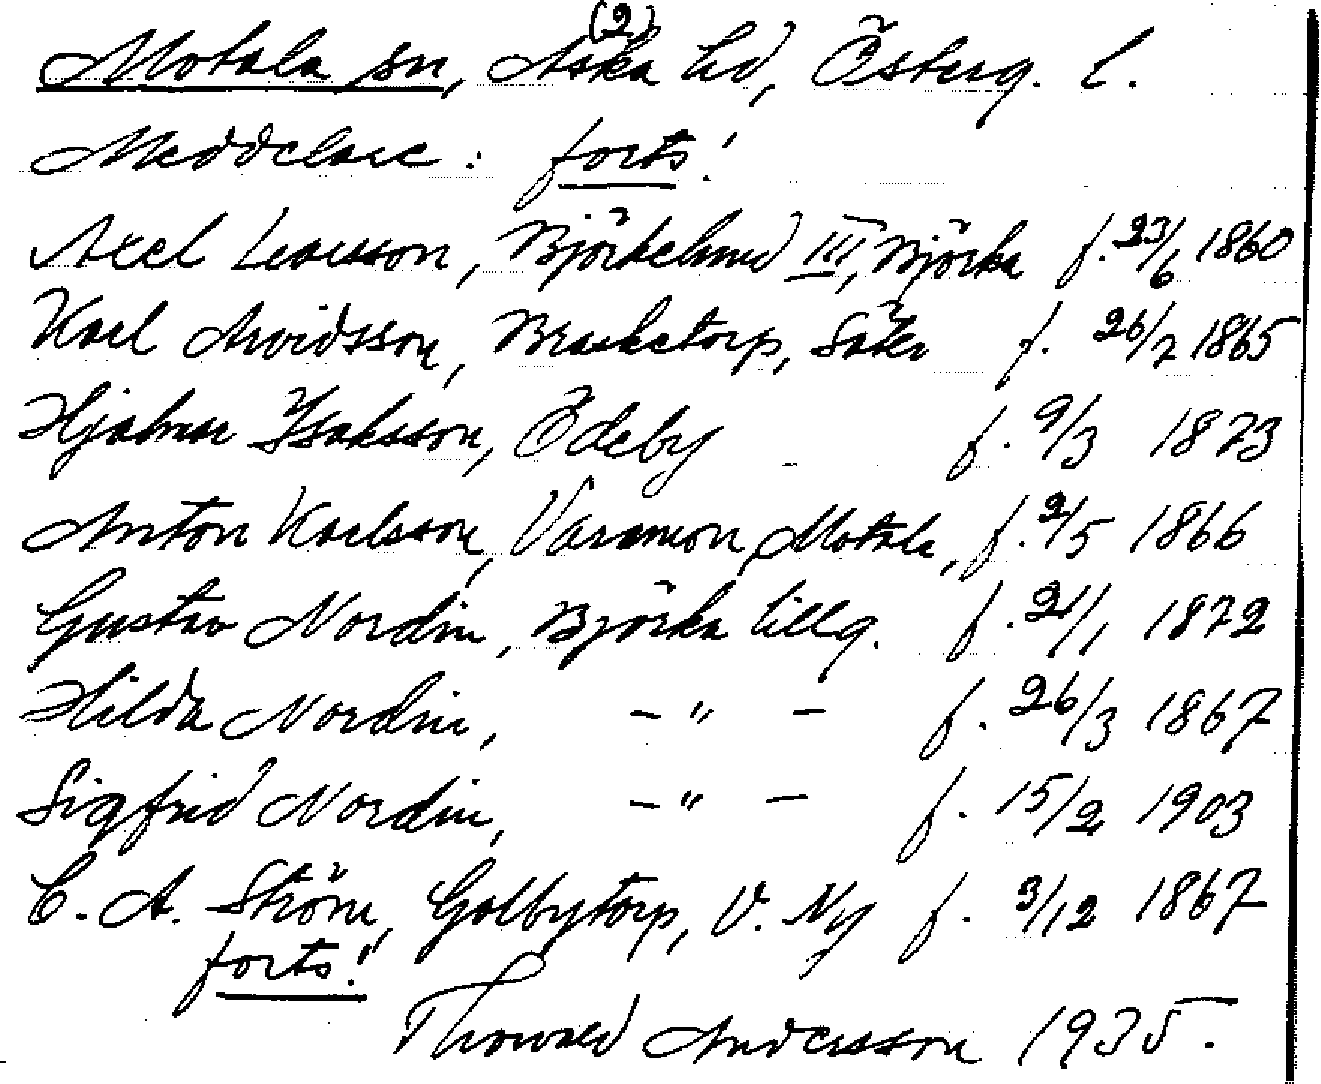 (2)
Motala sn, Aska hd, Österg. l.
Meddelare: forts!
Axel Larsson, Björkelund III, Björka f. 23/6 1860
Karl Arvidsson, Brasketorp, Säter f. 26/2 1865
Hjalmar Isaksson, Ödeby f. 9/3 1873
Anton Karlsson, Varamon, Motala, f. 2/5 1866
Gustav Nordin, Björka tillg. f. 21/1 1872
Hilda Nordin, - " - f. 26/3 1867
Sigfrid Nordin, - " - f. 15/2 1903
C. A. Ström, Golbytorp, V. Ny f. 3/12 1867
forts!
Thorvald Andersson 1935.